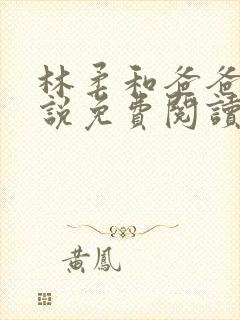 林柔和爸爸
說免費閱讀
黃鳳